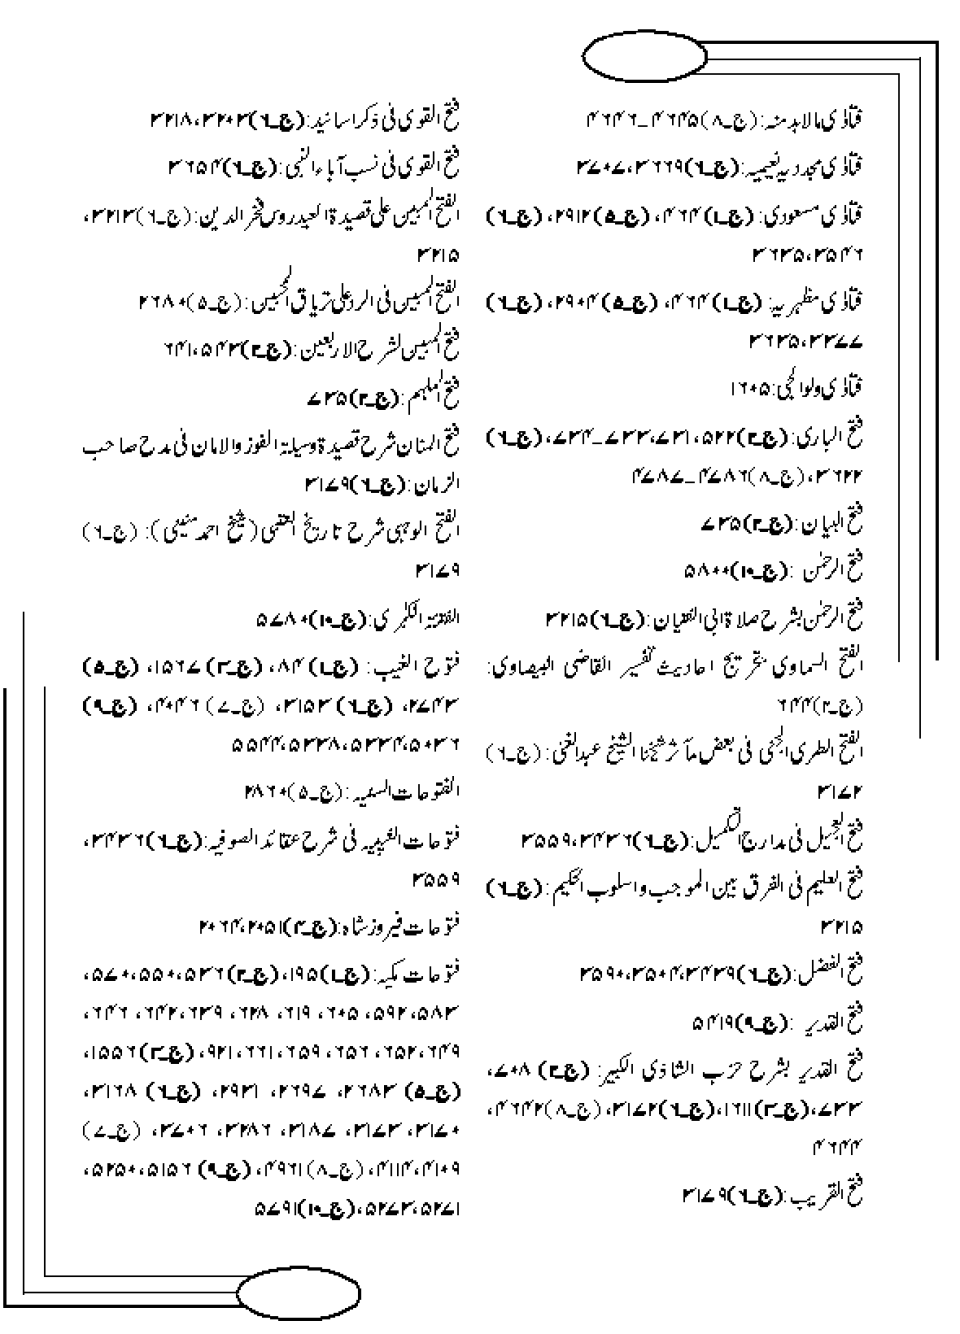 فتاوٰی مالابدمنہ: (ج۔۸) ۴۶۴۵۔۴۶۴۶
فتاوٰی مجددیہ نعیمیہ: (ج۔۶) ۳۶۶۹، ۳۷۰۷
فتاوٰی مسعودی: (ج۔۱) ۴۶۴، (ج۔۵) ۲۹۱۲، (ج۔۶)
۳۵۴۶، ۳۶۳۵
فتاوٰی مظہریہ: (ج۔۱) ۴۶۴، (ج۔۵) ۲۹۰۴، (ج۔۶)
۳۳۷۷، ۳۶۳۵
فتاوٰی ولوالجی: ۱۶۰۵
فتح الباری: (ج۔۲) ۵۲۲، ۷۳۱، ۷۳۳۔۷۳۴، (ج۔۶)
۳۶۲۲، (ج۔۸) ۴۷۸۶۔۴۷۸۷
فتح البیان: (ج۔۲) ۷۳۵
فتح الرحمٰن: (ج۔۱۰) ۵۸۰۰
فتح الرحمٰن بشرح صلاۃ ابی الفتیان: (ج۔۶) ۳۲۱۵
الفتح السماوی بتخریج احادیث تفسیر القاضی البیضاوی:
(ج۔۲) ۶۴۴
الفتح الطری الجنی فی بعض مآثر شیخنا الشیخ عبدالغنی: (ج۔۶)
۳۱۷۲
فتح الجمیل فی مدارج التکمیل: (ج۔۶) ۳۴۳۶، ۳۵۵۹
فتح العلیم فی الفرق بین الموجب واسلوب الحکیم: (ج۔۶)
۳۲۱۵
فتح الفضل: (ج۔۶) ۳۴۳۹، ۳۵۰۴، ۳۵۹۰
فتح القدیر: (ج۔۹) ۵۴۱۹
فتح القدیر بشرح حزب الشاذلی الکبیر: (ج۔۲) ۷۰۸،
۷۳۳، (ج۔۳) ۱۶۱۱، (ج۔۶) ۳۱۷۲، (ج۔۸) ۴۶۴۲،
۴۶۴۴
فتح القریب: (ج۔۶) ۳۱۷۹
فتح القوی فی ذکر اسانید: (ج۔۶) ۳۲۰۳، ۳۲۱۸
فتح القوی فی نسب آباء النبی: (ج۔۶) ۳۶۵۴
الفتح المبین علی قصیدۃ العیدروس فخر الدین: (ج۔۶) ۳۲۱۳،
۳۲۱۵
الفتح المبین فی الرد علی تریاق المحبین: (ج۔۵) ۲۶۸۰
فتح المبین لشرح الاربعین: (ج۔۲) ۵۴۳، ۶۴۱
فتح الملہم: (ج۔۲) ۷۳۵
فتح المنان شرح قصیدۃ وسیلۃ الفوز والامان فی مدح صاحب
الزمان: (ج۔۶) ۳۱۷۹
الفتح الوہبی شرح تاریخ العتمی (شیخ احمد منینی): (ج۔۶)
۳۱۷۹
الفتنۃ الکبرٰی: (ج۔۱۰) ۵۷۸۰
فتوح الغیب: (ج۔۱) ۸۴، (ج۔۳) ۱۵۶۷، (ج۔۵)
۲۷۴۳، (ج۔۶) ۳۱۵۳، (ج۔۷) ۴۰۴۶، (ج۔۹)
۵۰۳۶، ۵۳۳۴، ۵۳۳۸، ۵۵۴۴
الفتوحات السنیہ: (ج۔۵) ۲۸۶۰
فتوحات الغیبیہ فی شرح عقائد الصوفیہ: (ج۔۶) ۳۴۳۶،
۳۵۵۹
فتوحات فیروز شاہ: (ج۔۴) ۲۰۵۱، ۲۰۶۴
فتوحات مکیہ: (ج۔۱) ۱۹۵، (ج۔۲) ۵۳۶، ۵۵۰، ۵۷۰،
۵۸۳، ۵۹۲، ۶۰۵، ۶۱۹، ۶۲۸، ۶۳۹، ۶۴۲، ۶۴۶،
۶۴۹، ۶۵۲، ۶۵۶، ۶۵۹، ۶۶۱، ۹۲۱، (ج۔۳) ۱۵۵۶،
(ج۔۵) ۲۶۸۳، ۲۶۹۷، ۲۹۳۱، (ج۔۶) ۳۱۶۸،
۳۱۷۰، ۳۱۷۳، ۳۱۸۷، ۳۲۸۶، ۳۷۰۶، (ج۔۷)
۴۱۰۹، ۴۱۱۴، (ج۔۸) ۴۹۶۱، (ج۔۹) ۵۱۵۶، ۵۲۵۰،
۵۲۷۱، ۵۲۷۳، (ج۔۱۰) ۵۷۹۱